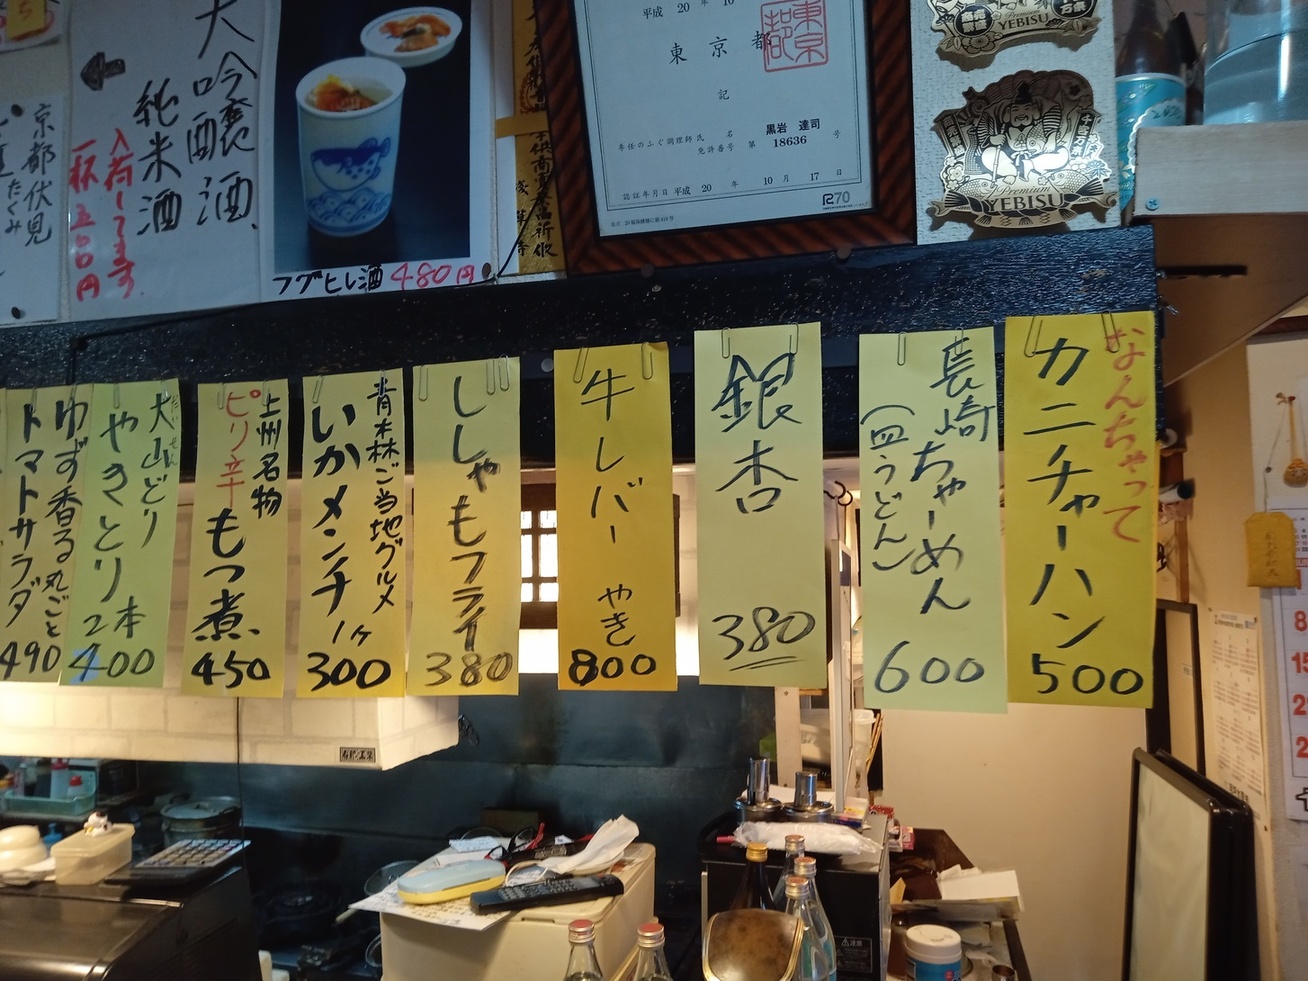 大吟醸酒
純米酒
入荷してます
一杯 五〇〇円
京都伏見
たくみ
フグヒレ酒 480円
平成 20 年 10
東京都
記
黒岩 達司
専任のふぐ調理師 氏 名
免許番号 第 18636 号
認証年月日 平成 20 年 10 月 17 日
R70
YEBISU
Premium
YEBISU
なんちゃって
カニチャーハン
500
長崎ちゃーめん
(皿うどん)
600
銀杏
380
牛レバーやき
800
ししゃもフライ
380
青木林ご当地グルメ
いかメンチ 1ヶ
300
上州名物
ピリ辛もつ煮
450
大山どり
やきとり 2本
400
ゆず香る丸ごと
トマトサラダ
490